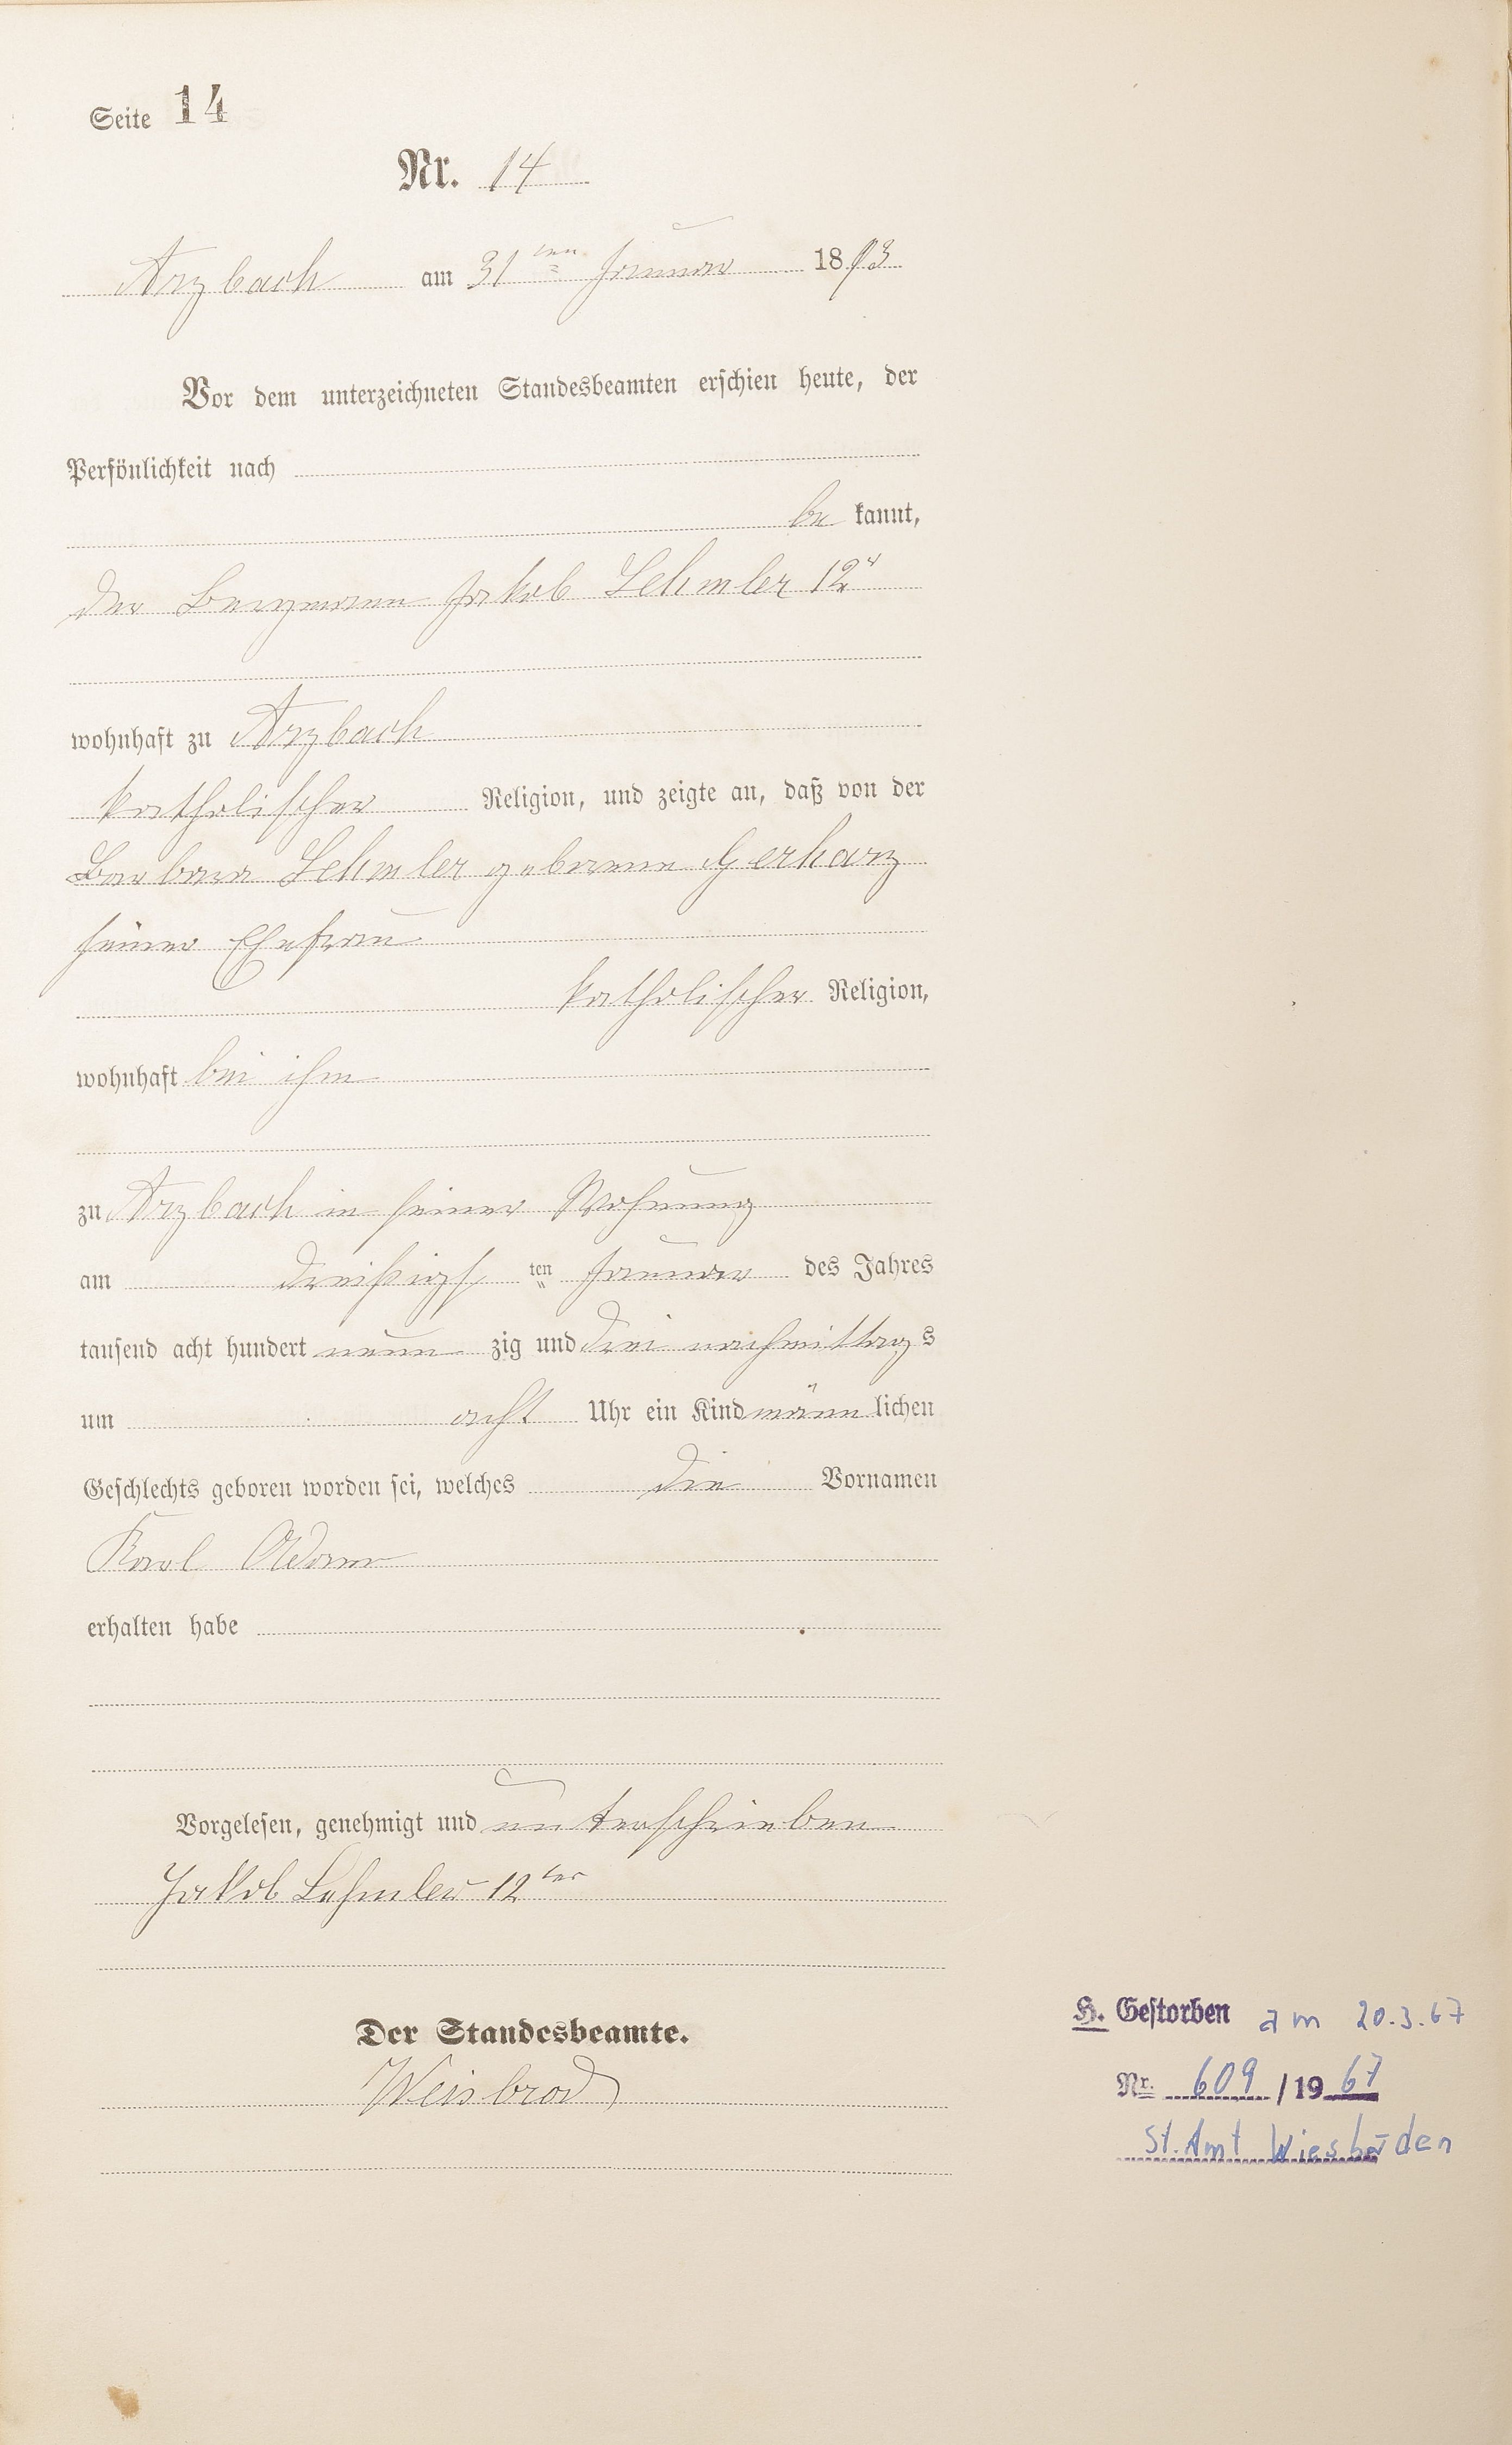 Seite 14
Nr. 14
Arzbach am 31ten Januar 1893
Vor dem unterzeichneten Standesbeamten erschien heute, der
Persönlichkeit nach
be kannt,
der Bergmann Jakob Lehmler 12r
wohnhaft zu Arzbach
katholischer Religion, und zeigte an, daß von der
Barbara Lehmler geborene Gerharz
seiner Ehefrau
katholischer Religion,
wohnhaft bei ihm
zu Arzbach in seiner Wohnung
am dreißigs ten Januar des Jahres
tausend acht hundert neun zig und drei nachmittags
um acht Uhr ein Kind männ lichen
Geschlechts geboren worden sei, welches die Vornamen
Karl Adam
erhalten habe
Vorgelesen, genehmigt und unterschrieben
Jakob Lehmler 12ter
Der Standesbeamte.
Weisbrod
H. Gestorben am 20.3.67
Nr. 609 / 19 67
St. Amt Wiesbaden